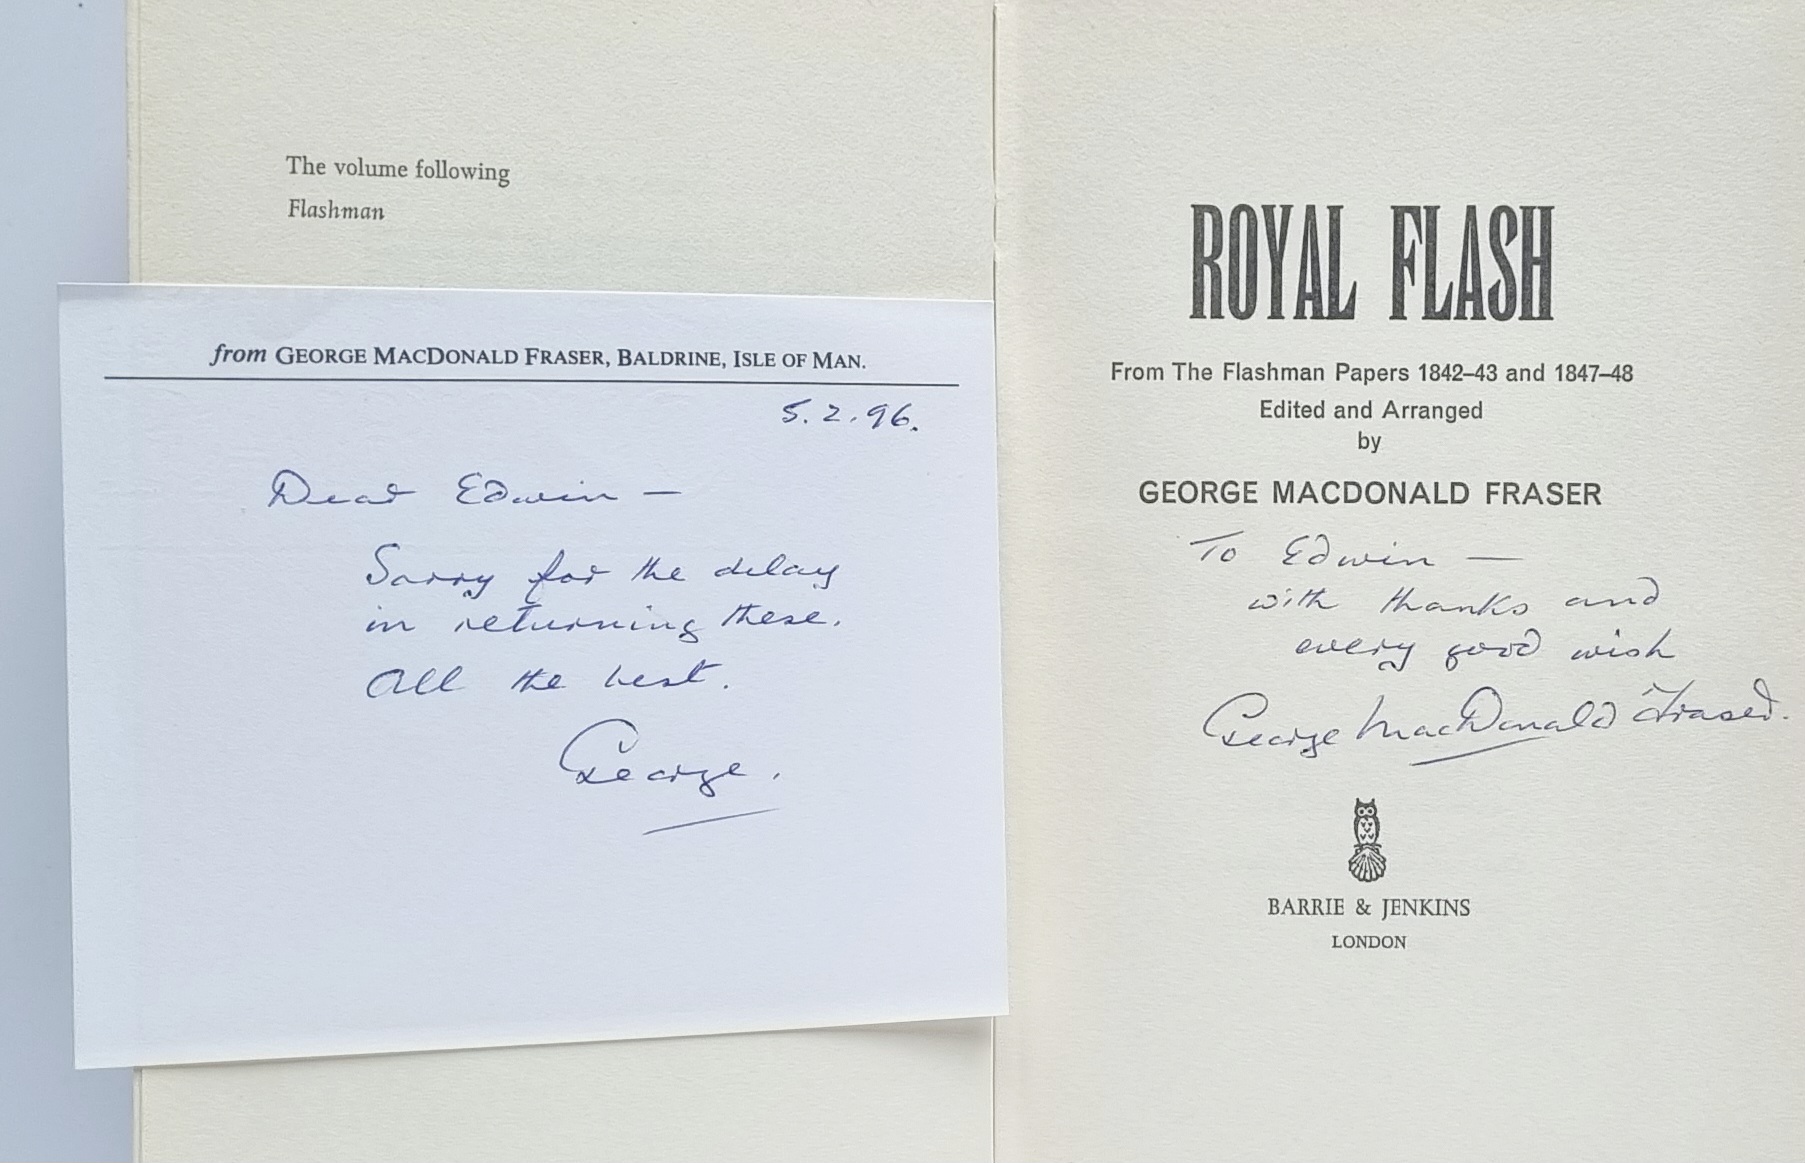 The volume following
Flashman
from GEORGE MACDONALD FRASER, BALDRINE, ISLE OF MAN.
5.2.96.
Dear Edwin —
Sorry for the delay
in returning these.
All the best.
George.
ROYAL FLASH
From The Flashman Papers 1842–43 and 1847–48
Edited and Arranged
by
GEORGE MACDONALD FRASER
To Edwin —
with thanks and
every good wish
George MacDonald Fraser.
BARRIE & JENKINS
LONDON